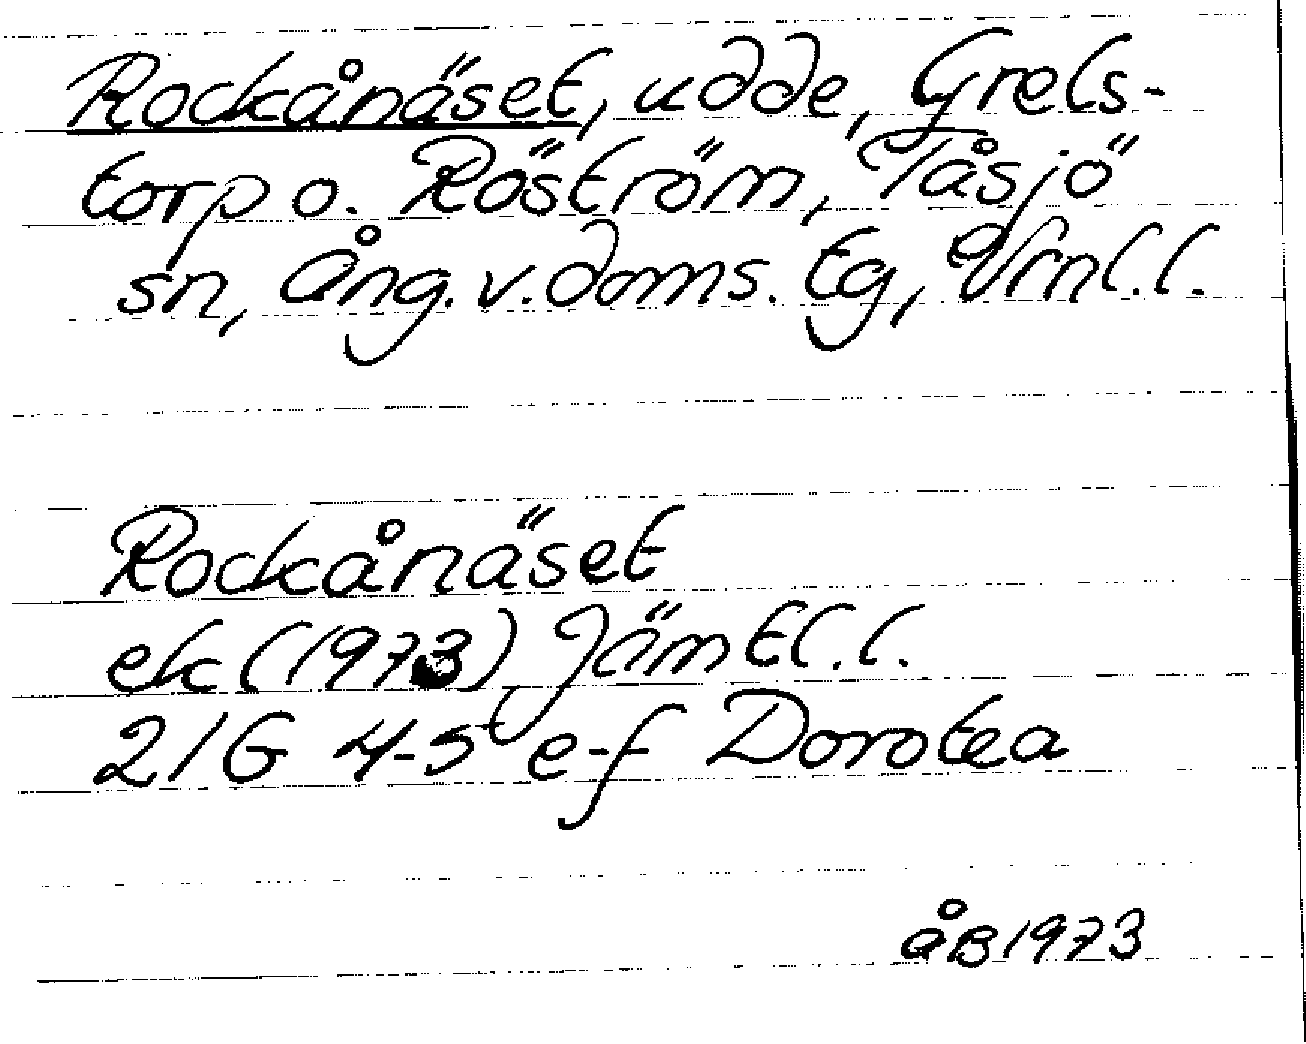 Rockånäset, udde, Grels-
torp o. Röström, Tåsjö
sn, Ång. v. doms. tg, Vrnl.l.
Rockånäset
ek (1973) Jämtl.l.
21G 4-5 e-f Dorotea
åB 1973